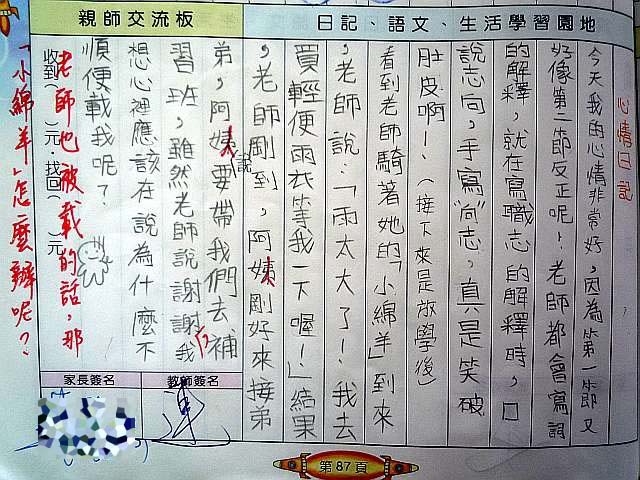 日記、語文、生活學習園地
親師交流板
心情日記
今天我的心情非常好,因為第一節又
好像第二節反正呢!老師都會寫詞
的解釋,就在寫職志的解釋時,口
說志向,手寫"向"志,真是笑破
肚皮啊!(接下來是放學後)
看到老師騎著她的「小綿羊」到來
,老師說:「雨太大了!我去
買輕便雨衣等我一下喔!」結果
,老師剛到,阿姨剛好來接弟
弟,阿姨說要帶我們去補
習班,雖然老師說謝謝我
想心裡應該在說為什麼不
順便載我呢?
收到( )元,找回( )元
老師也被載的話,那
「小綿羊」怎麼辦呢?
教師簽名
家長簽名
第87頁